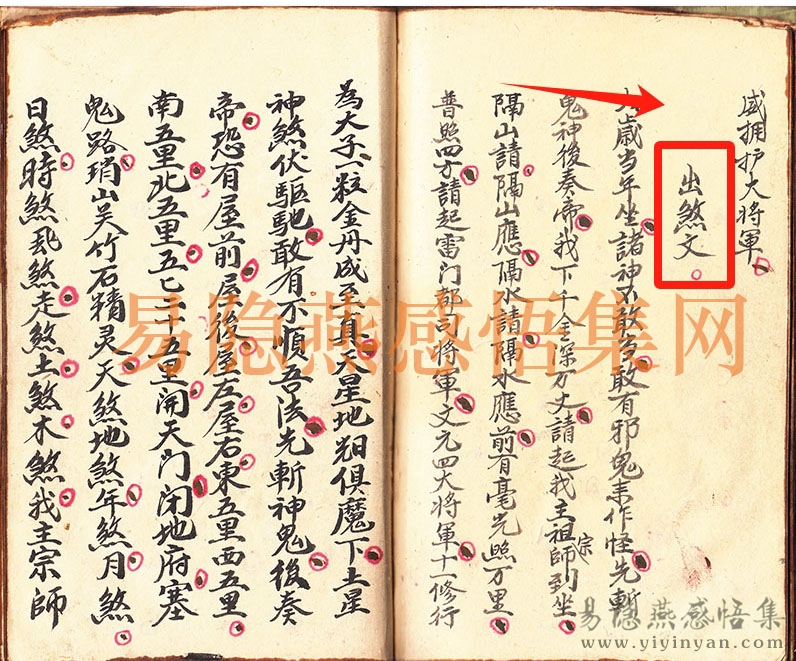 威拥护大将軍
出煞文
太歲当年坐諸神不敢當敢有邪鬼來作怪先斬
鬼神後奏帝我下千金深万丈請起我主祖師到坐
宗
隔山請隔山應隔水請隔水應前有毫光照万里
普照四方請起雷门都司將軍文元四大將軍十一修行
為大子一粒金丹成至真天星地曜俱魔下土星
神煞伏驅馳敢有不順吾法先斬神鬼後奏
帝恐有屋前屋後屋左屋右東五里西五里
南五里北五里五七二十五里開天门闭地府塞
鬼路瑣山吴竹石精灵天煞地煞年煞月煞
日煞時煞乱煞走煞土煞木煞我主宗師
易隐燕感悟集网
易隐燕感悟集
www.yiyinyan.com